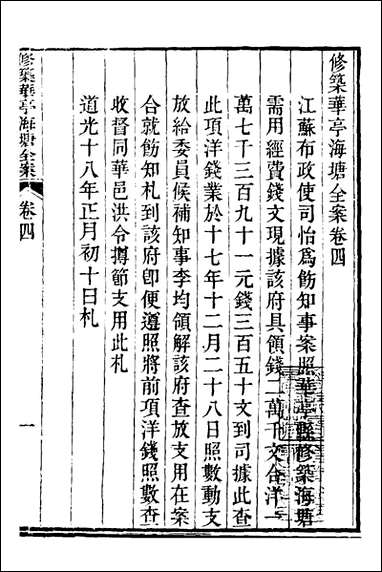 修築華亭海塘全案卷四
江蘇布政使司怡爲飭知事案照華亭縣修築海塘
需用經費錢文現據該府具領錢二萬千文合洋一
萬七千三百九十一元錢三百五十文到司據此查
此項洋錢業於十七年十二月二十八日照數動支
放給委員候補知事李均領解該府查放支用在案
合就飭知札到該府卽便遵照將前項洋錢照數查
收督同華邑洪令撙節支用此札
道光十八年正月初十日札
修築華亭海塘全案
卷四
一